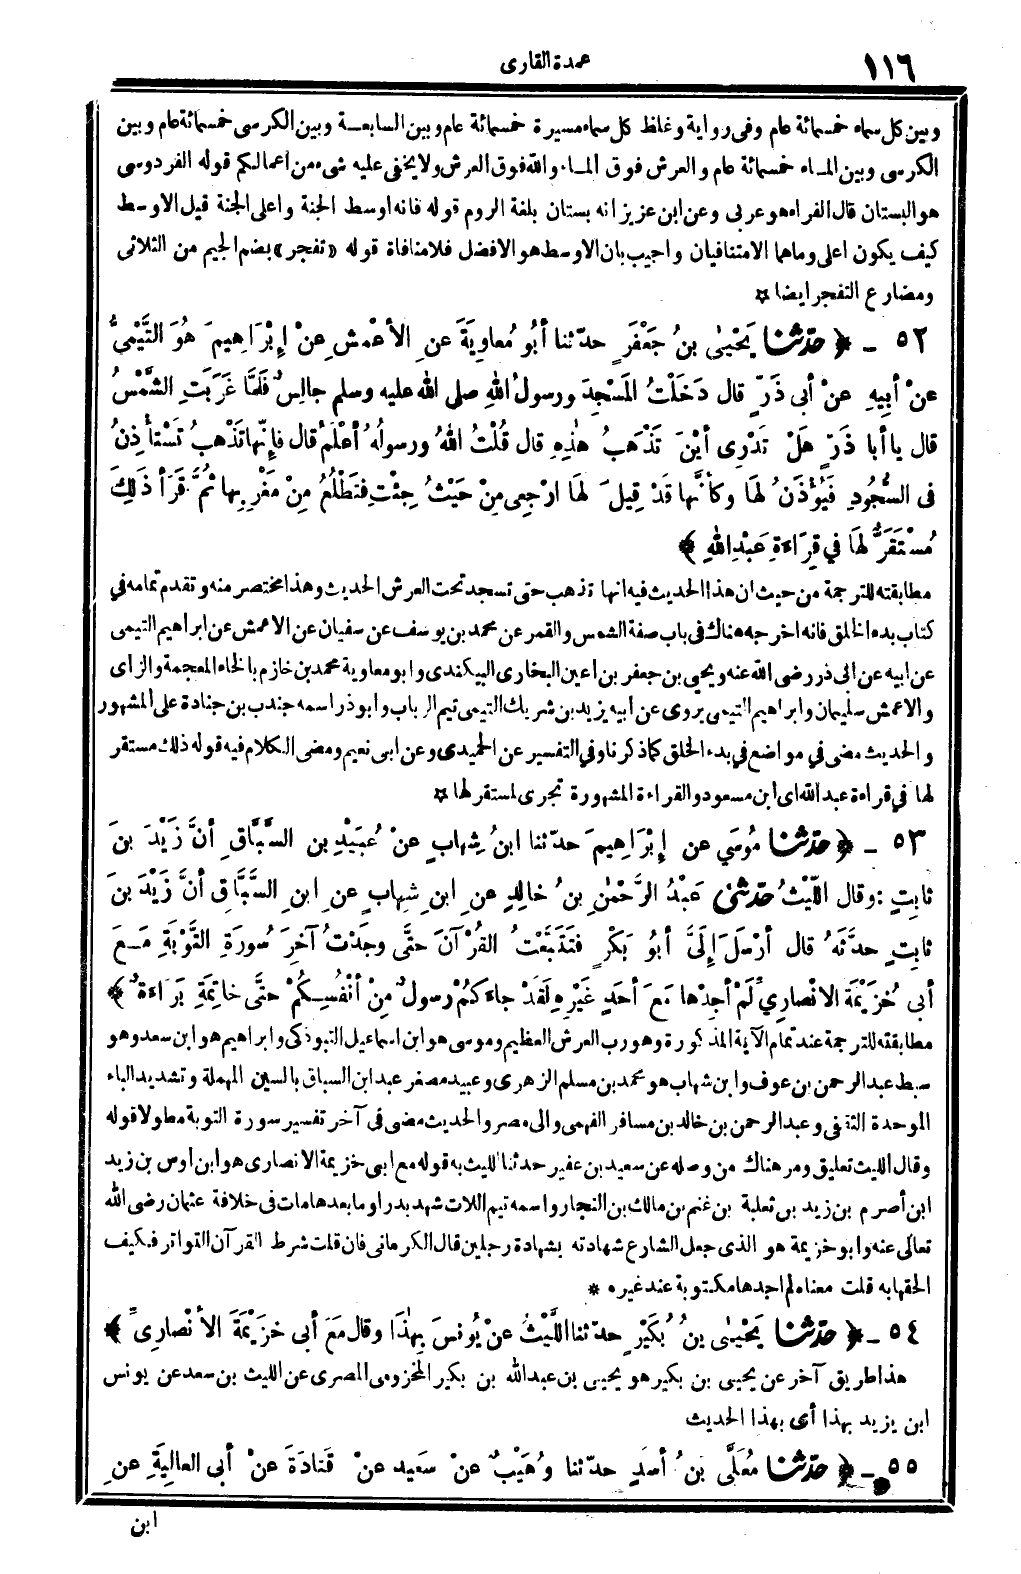 ١١٦
عمدة القارى
وبين كل سماء خمسمائة عام وفى رواية وغلظ كل سماء مسيرة خمسمائة عام وبين السابعة وبين الكرسى خمسمائة عام وبين
الكرسى وبين الماء خمسمائة عام والعرش فوق الماء والله فوق العرش ولا يخفى عليه شىء من أعمالكم قوله الفردوسى
هو البستان قال الفراء هو عربى وعن ابن عزيز انه بستان بلغة الروم قوله فانه اوسط الجنة واعلى الجنة قيل الاوسط
كيف يكون اعلى وماهما الامتنافيان واجيب بان الاوسط هو الافضل فلا منافاة قوله «تفجر» بضم الجيم من الثلاثى
ومضارع التفجر ايضا ✡
٥٢ ـ ﴿ حدّثنا يَحْيَى بنُ جَعْفَرٍ حدّثنا أبُو مُعاوِيَةَ عنِ الأعْمَشِ عنْ إِبْرَاهِيمَ هُوَ التَّيْمِىُّ
عنْ أبِيهِ عنْ أبى ذَرٍّ قال دَخَلْتُ المَسْجِدَ ورسولُ اللهِ صلى الله عليه وسلم جالِسٌ فَلَمَّا غَرَبَتِ الشَّمْسُ
قال ياأبا ذَرٍّ هَلْ تَدْرِى أيْنَ تَذْهَبُ هٰذِهِ قال قُلْتُ اللهُ ورسولُهُ أعْلَمُ قال فإِنَّها تَذْهَبُ تَسْتأْذِنُ
فى السُّجُودِ فَيُؤْذَنُ لهَا وكأنَّها قَدْ قِيلَ لهَا ارْجِعِى مِنْ حَيْثُ جِئْتِ فتَطْلُعُ مِنْ مَغْرِبِها ثُمَّ قَرَأ ذَلِكَ
مُسْتَقَرٌّ لهَا فى قِرَاءَةِ عَبْدِ اللهِ ﴾
مطابقته للترجمة من حيث ان هذا الحديث فيه انها تذهب حتى تسجد تحت العرش الحديث وهذا مختصر منه وتقدم تمامه فى
كتاب بدء الخلق فانه اخرجه هناك فى باب صفة الشمس والقمر عن محمد بن يوسف عن سفيان عن الاعمش عن ابراهيم التيمى
عن ابيه عن ابى ذر رضى الله عنه ويحيى بن جعفر بن اعين البخارى البيكندى وابو معاوية محمد بن خازم بالخاء المعجمة والزاى
والاعمش سليمان وابراهيم التيمى يروى عن ابيه يزيد بن شريك التيمى تيم الرباب وابو ذر اسمه جندب بن جنادة على المشهور
والحديث مضى فى مواضع فى بدء الخلق كما ذكرنا وفى التفسير عن الحميدى وعن ابى نعيم ومضى الكلام فيه قوله ذلك مستقر
لها فى قراءة عبد الله اى ابن مسعود والقراءة المشهورة تجرى لمستقر لها ✡
٥٣ ـ ﴿ حدّثنا مُوسَي عن إِبْرَاهِيمَ حدّثنا ابنُ شِهابٍ عنْ عُبَيْدِ بنِ السَّبَّاقِ أنَّ زَيْدَ بنَ
ثابِتٍ : وقال اللَّيْثُ حدّثنى عَبْدُ الرَّحْمٰنِ بنُ خالِدٍ عنِ ابنِ شِهابٍ عنِ ابنِ السَّبَّاقِ أنَّ زَيْدَ بنَ
ثابِتٍ حدَّثَهُ قال أرْسَلَ إِلَىَّ أبُو بَكْرٍ فتَتَبَّعْتُ القُرْآنَ حتَّى وجَدْتُ آخِرَ سُورَةِ التَّوْبَةِ مَعَ
أبى خُزَيْمَةَ الانْصارِيِّ لَمْ أجِدْها مَعَ أحَدٍ غَيْرِهِ لقَدْ جاءَكُمْ رسولٌ مِنْ أنْفُسِكُمْ حتَّى خاتِمَةِ بَرَاءَةٌ ﴾
مطابقته للترجمة عند تمام الآية المذكورة وهو رب العرش العظيم وموسى هو ابن اسماعيل التبوذكى وابراهيم هو ابن سعد وهو
سبط عبد الرحمن بن عوف وابن شهاب هو محمد بن مسلم الزهرى وعبيد مصغر عبد ابن السباق بالسين المهملة وتشديد الباء
الموحدة الثقفى وعبد الرحمن بن خالد بن مسافر الفهمى والى مصر والحديث مضى فى آخر تفسير سورة التوبة مطولا قوله
وقال الليث تعليق ومر هناك من وصله عن سعيد بن عفير حدثنا الليث به قوله مع ابى خزيمة الانصارى هو ابن اوس بن زيد
ابن أصرم بن زيد بن ثعلبة بن غنم بن مالك بن النجار واسمه تيم اللات شهد بدرا وما بعدها مات فى خلافة عثمان رضى الله
تعالى عنه وابو خزيمة هو الذى جعل الشارع شهادته بشهادة رجلين قال الكرمانى فان قلت شرط القرآن التواتر فكيف
الحقها به قلت معناه لم اجدها مكتوبة عند غيره *
٥٤ ـ ﴿ حدّثنا يَحْيىٰ بنُ بُكَيْرٍ حدّثنا اللَّيْثُ عنْ يُونسَ بِهٰذَا وقال مَعَ أبى خزَيْمَةَ الأنْصارِيِّ ﴾
هذا طريق آخر عن يحيى بن بكير هو يحيى بن عبد الله بن بكير المخزومى المصرى عن الليث بن سعد عن يونس
ابن يزيد بهذا أى بهذا الحديث
٥٥ ـ ﴿ حدّثنا مُعَلَّى بنُ أسَدٍ حدّثنا وُهَيْبٌ عنْ سَعِيدٍ عنْ قَتَادَةَ عنْ أبى العالِيَةِ عنِ
ابن